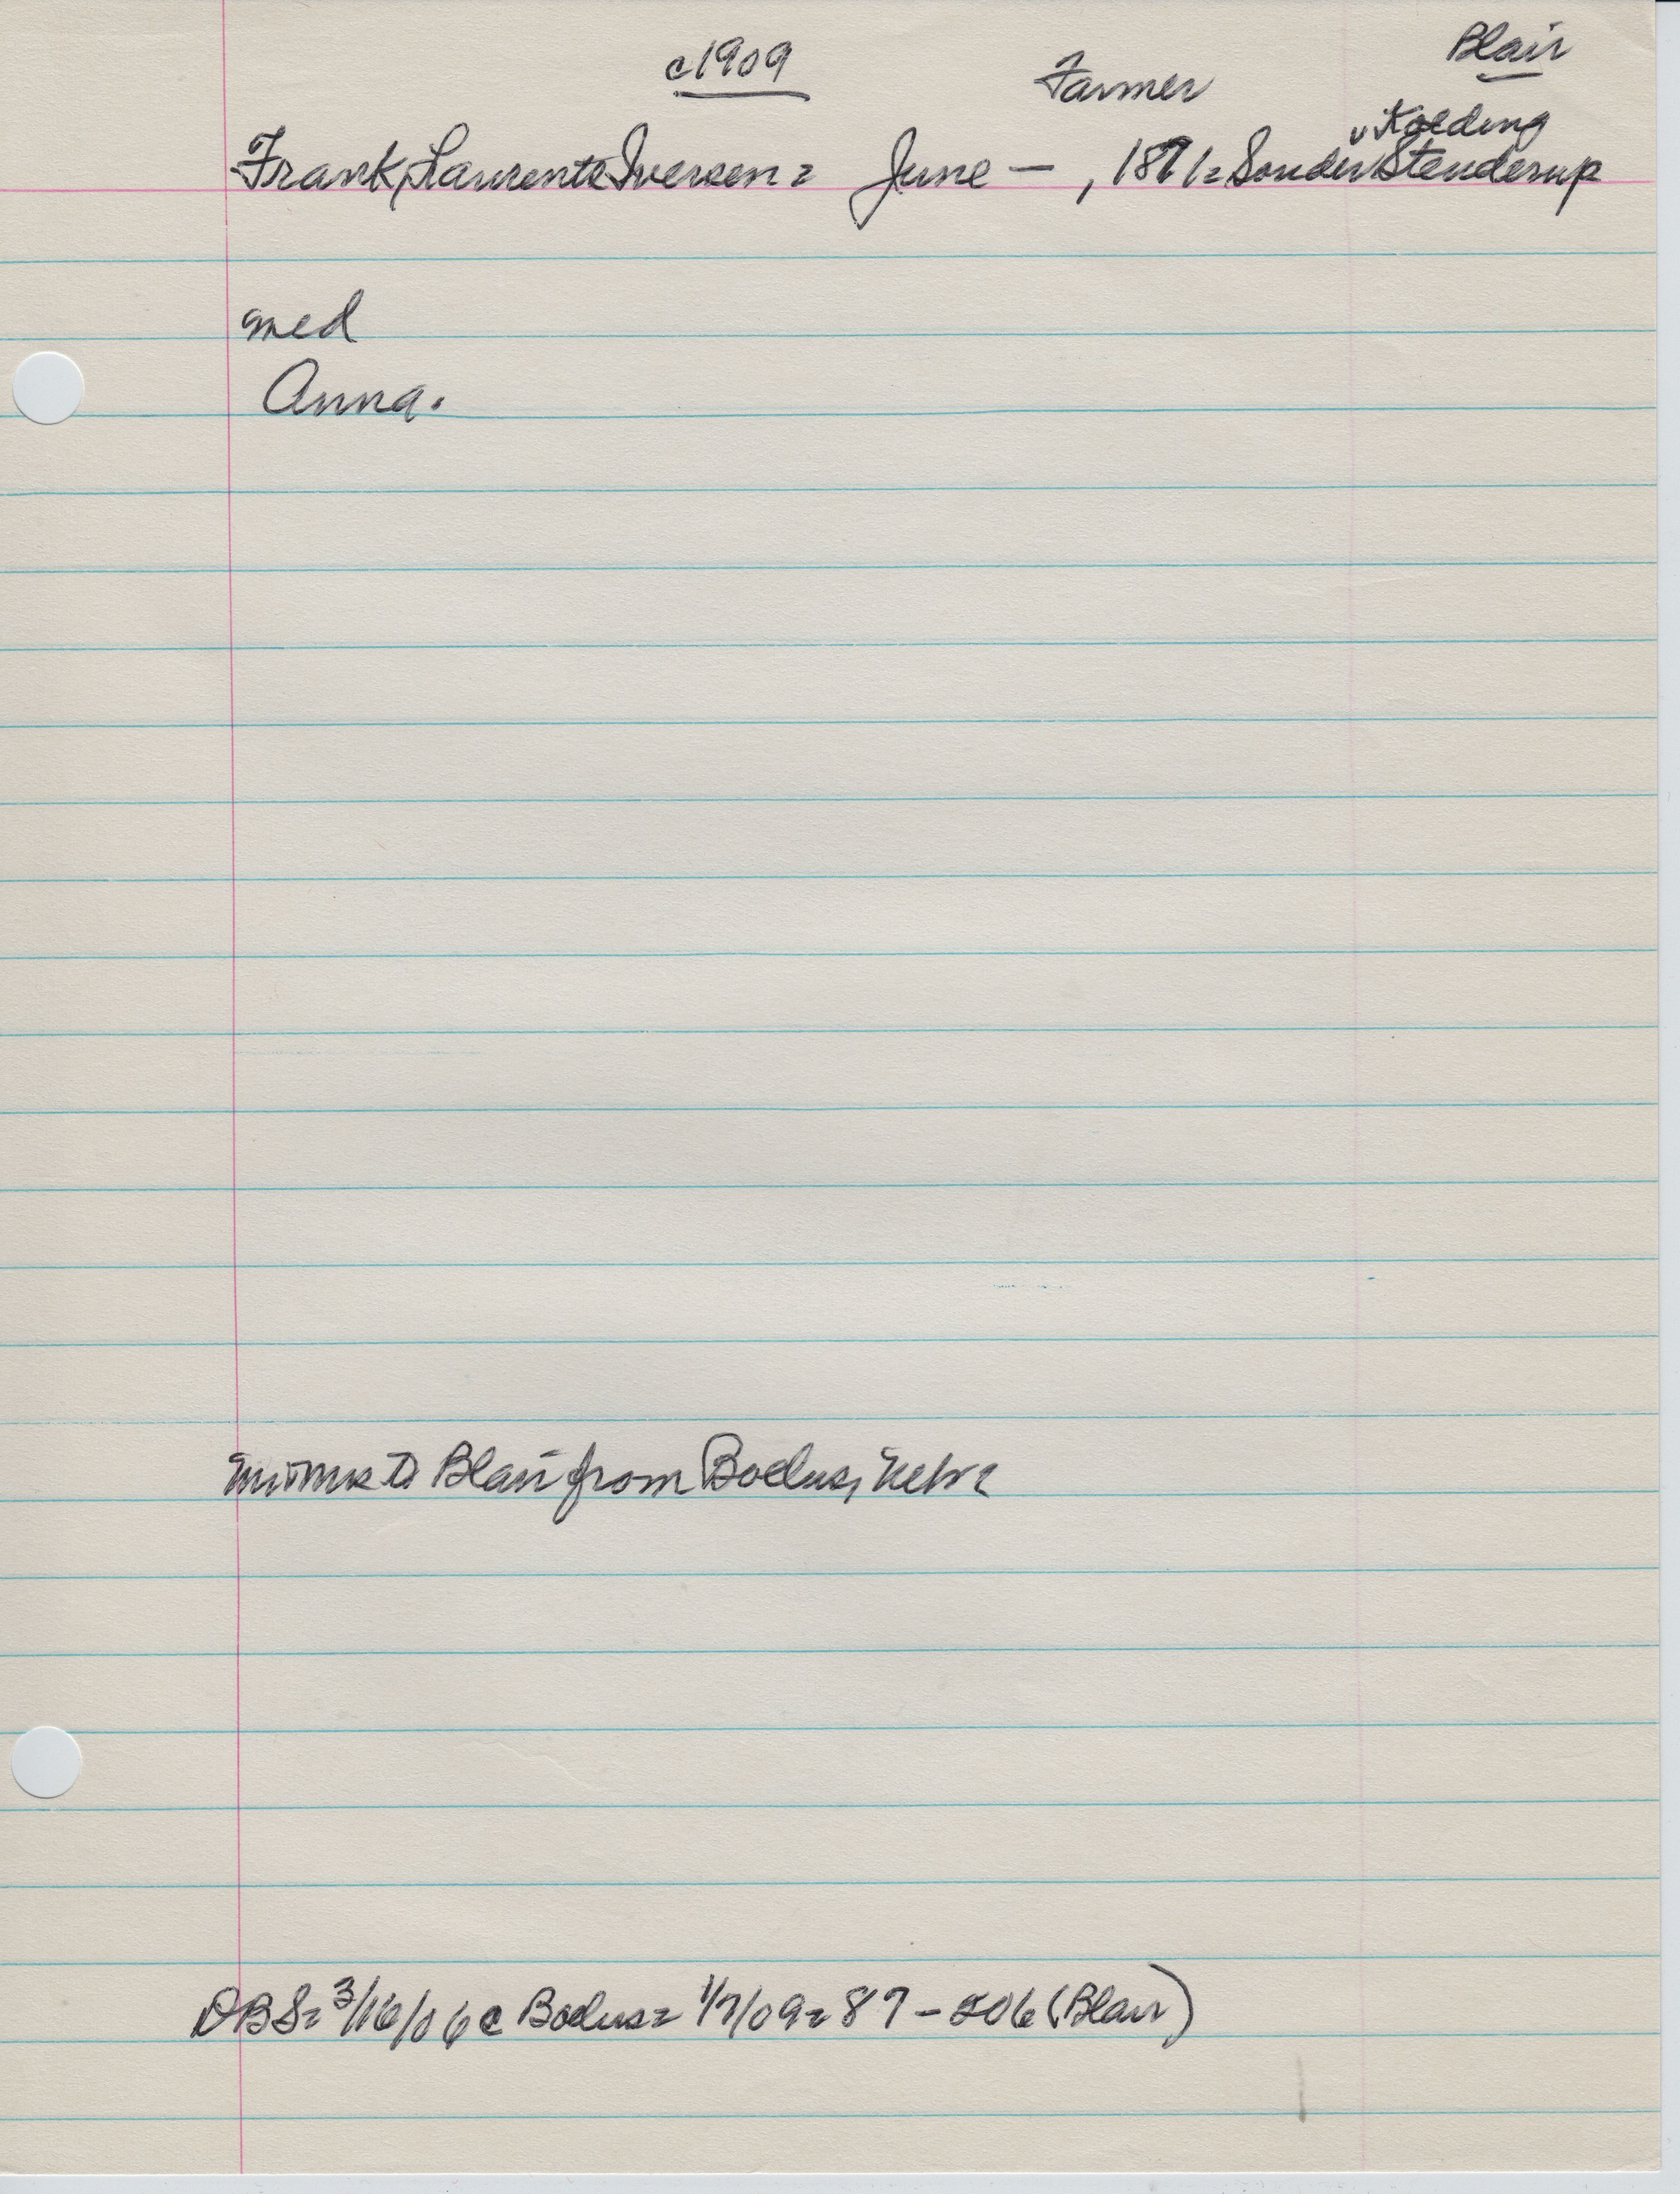 c1909 Farmer Blair
v Kolding
Frank Laurents Iversen = June — , 1871 = Sonder Stenderup
med
Anna.
to Blair from Boelus, Nebr =
DBS = 3/16/06 c Boelus = 1/7/09 = 87 - 206 (Blair)